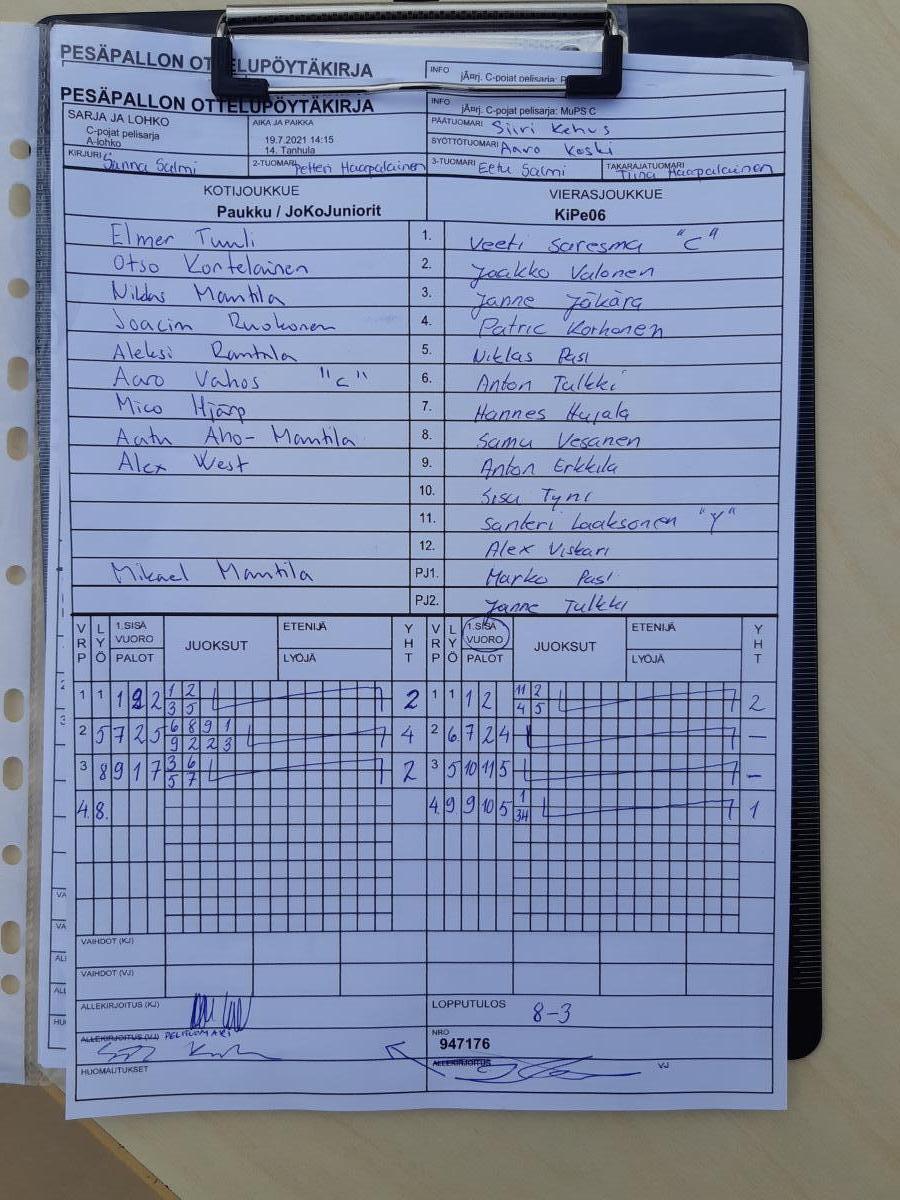 PESÄPALLON OTTELUPÖYTÄKIRJA
INFO
PESÄPALLON OTTELUPÖYTÄKIRJA
INFO
jÄ¤rj. C-pojat pelisarja: MuPS C
SARJA JA LOHKO
C-pojat pelisarja
A-lohko
AIKA JA PAIKKA
19.7.2021 14:15
14. Tanhula
PÄÄTUOMARI Siiri Kehus
SYÖTTÖTUOMARI Aaro Koski
KIRJURI Sanna Salmi
2-TUOMARI Petteri Haapalainen
3-TUOMARI Eetu Salmi
TAKARAJATUOMARI Tiina Haapalainen
KOTIJOUKKUE
Paukku / JoKoJuniorit
VIERASJOUKKUE
KiPe06
Elmer Tuuli 1. Veeti Saresma "C"
Otso Kontelainen 2. Jaakko Valonen
Niklas Mantila 3. Janne Jökärä
Joacim Ruokonen 4. Patric Korhonen
Aleksi Rantala 5. Niklas Pasi
Aaro Vahos "C" 6. Anton Tulkki
Mico Hjärp 7. Hannes Hujala
Aatu Aho-Mantila 8. Samu Vesanen
Alex West 9. Anton Erkkilä
10. Sisu Tyni
11. Santeri Laaksonen "Y"
12. Alex Viskari
Mikael Mantila PJ1. Marko Pasi
PJ2. Janne Tulkki
VRP LYÖ 1.SISÄ VUORO PALOT JUOKSUT ETENIJÄ LYÖJÄ YHT VRP LYÖ 1.SISÄ VUORO PALOT JUOKSUT ETENIJÄ LYÖJÄ YHT
1 1 1 2 2 1 2 2 1 1 1 2 11 2 2
3 5 4 5
2 5 7 2 5 6 8 9 1 4 2 6 7 2 4 –
9 2 2 3
3 8 9 1 7 3 6 2 3 5 10 11 5 –
5 7
4. 8. 4. 9 9 10 5 1 1
34
VAIHDOT (KJ)
VAIHDOT (VJ)
ALLEKIRJOITUS (KJ)
LOPPUTULOS
8-3
ALLEKIRJOITUS (VJ) PELITUOMARI
NRO
947176
HUOMAUTUKSET
ALLEKIRJOITUS VJ